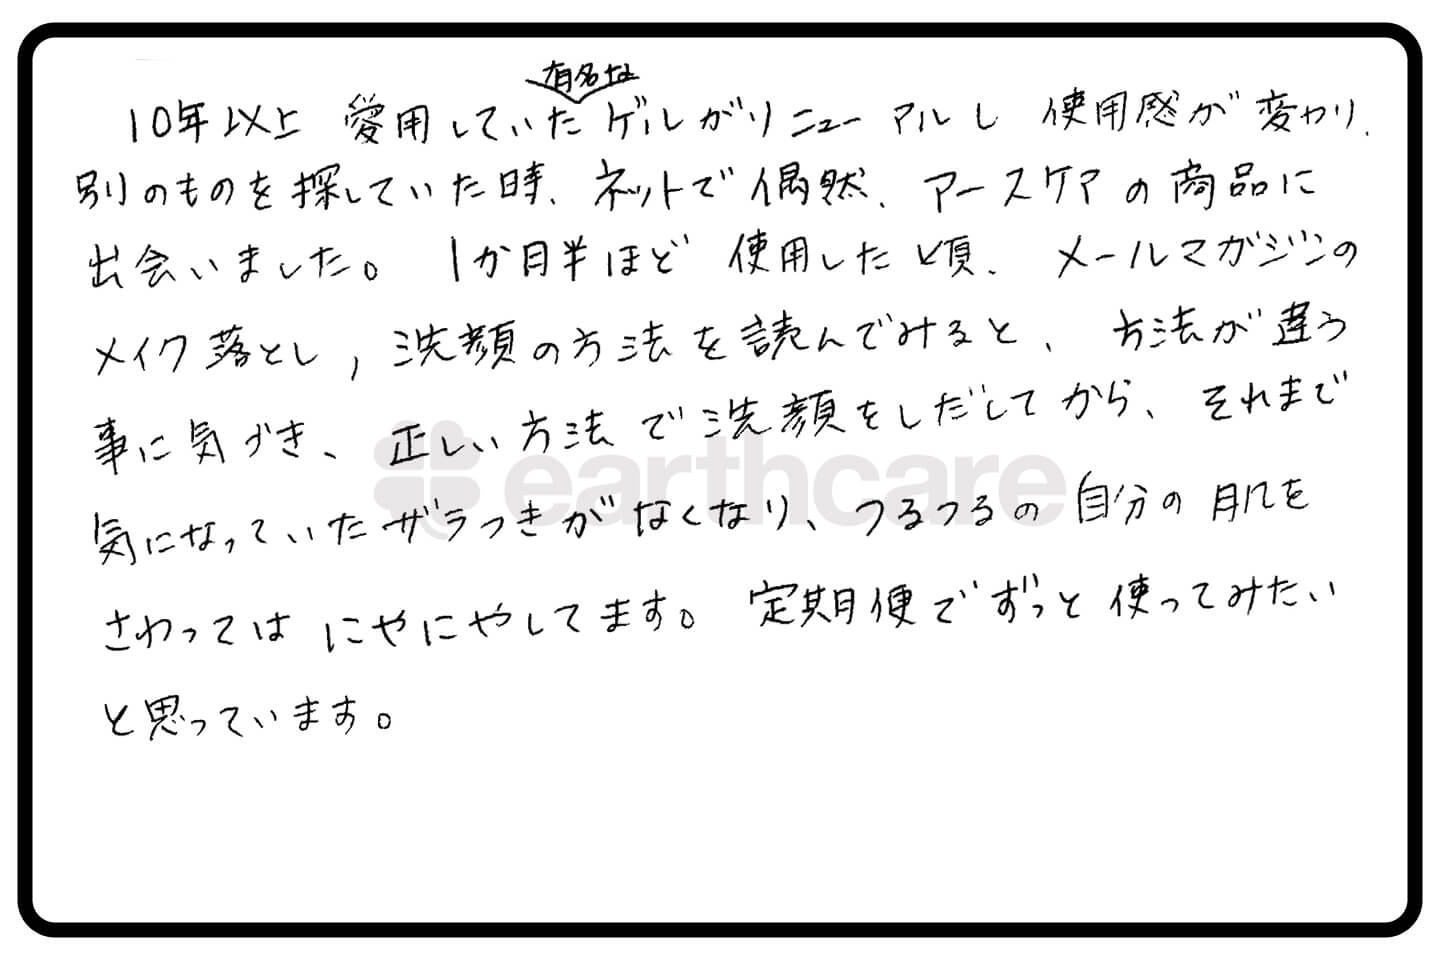 有名な
10年以上 愛用していたゲルがリニューアルし 使用感が変わり、
別のものを探していた時、ネットで偶然、アースケアの商品に
出会いました。 1か月半ほど 使用した頃、メールマガジンの
メイク落とし,洗顔の方法を読んでみると、方法が違う
事に気づき、正しい方法で洗顔をしだしてから、それまで
earthcare
気になっていたザラつきがなくなり、つるつるの自分の肌を
さわっては にやにやしてます。 定期便でずっと使ってみたい
と思っています。